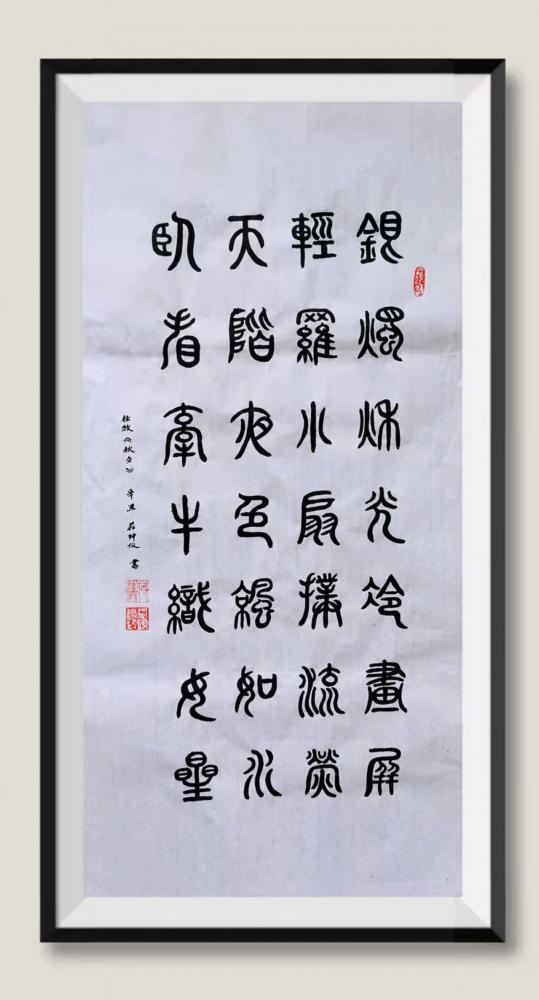 銀燭秋光冷畫屏
輕羅小扇撲流螢
天階夜色涼如水
臥看牽牛織女星
杜牧《秋夕》 辛丑 書